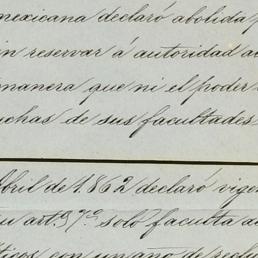 mexicana declaró abolida
in reservar á autoridad
manera que ni el poder
uchas de sus facultades
Abril de 1862 declaró
art. 37º solo faculta
con un año de